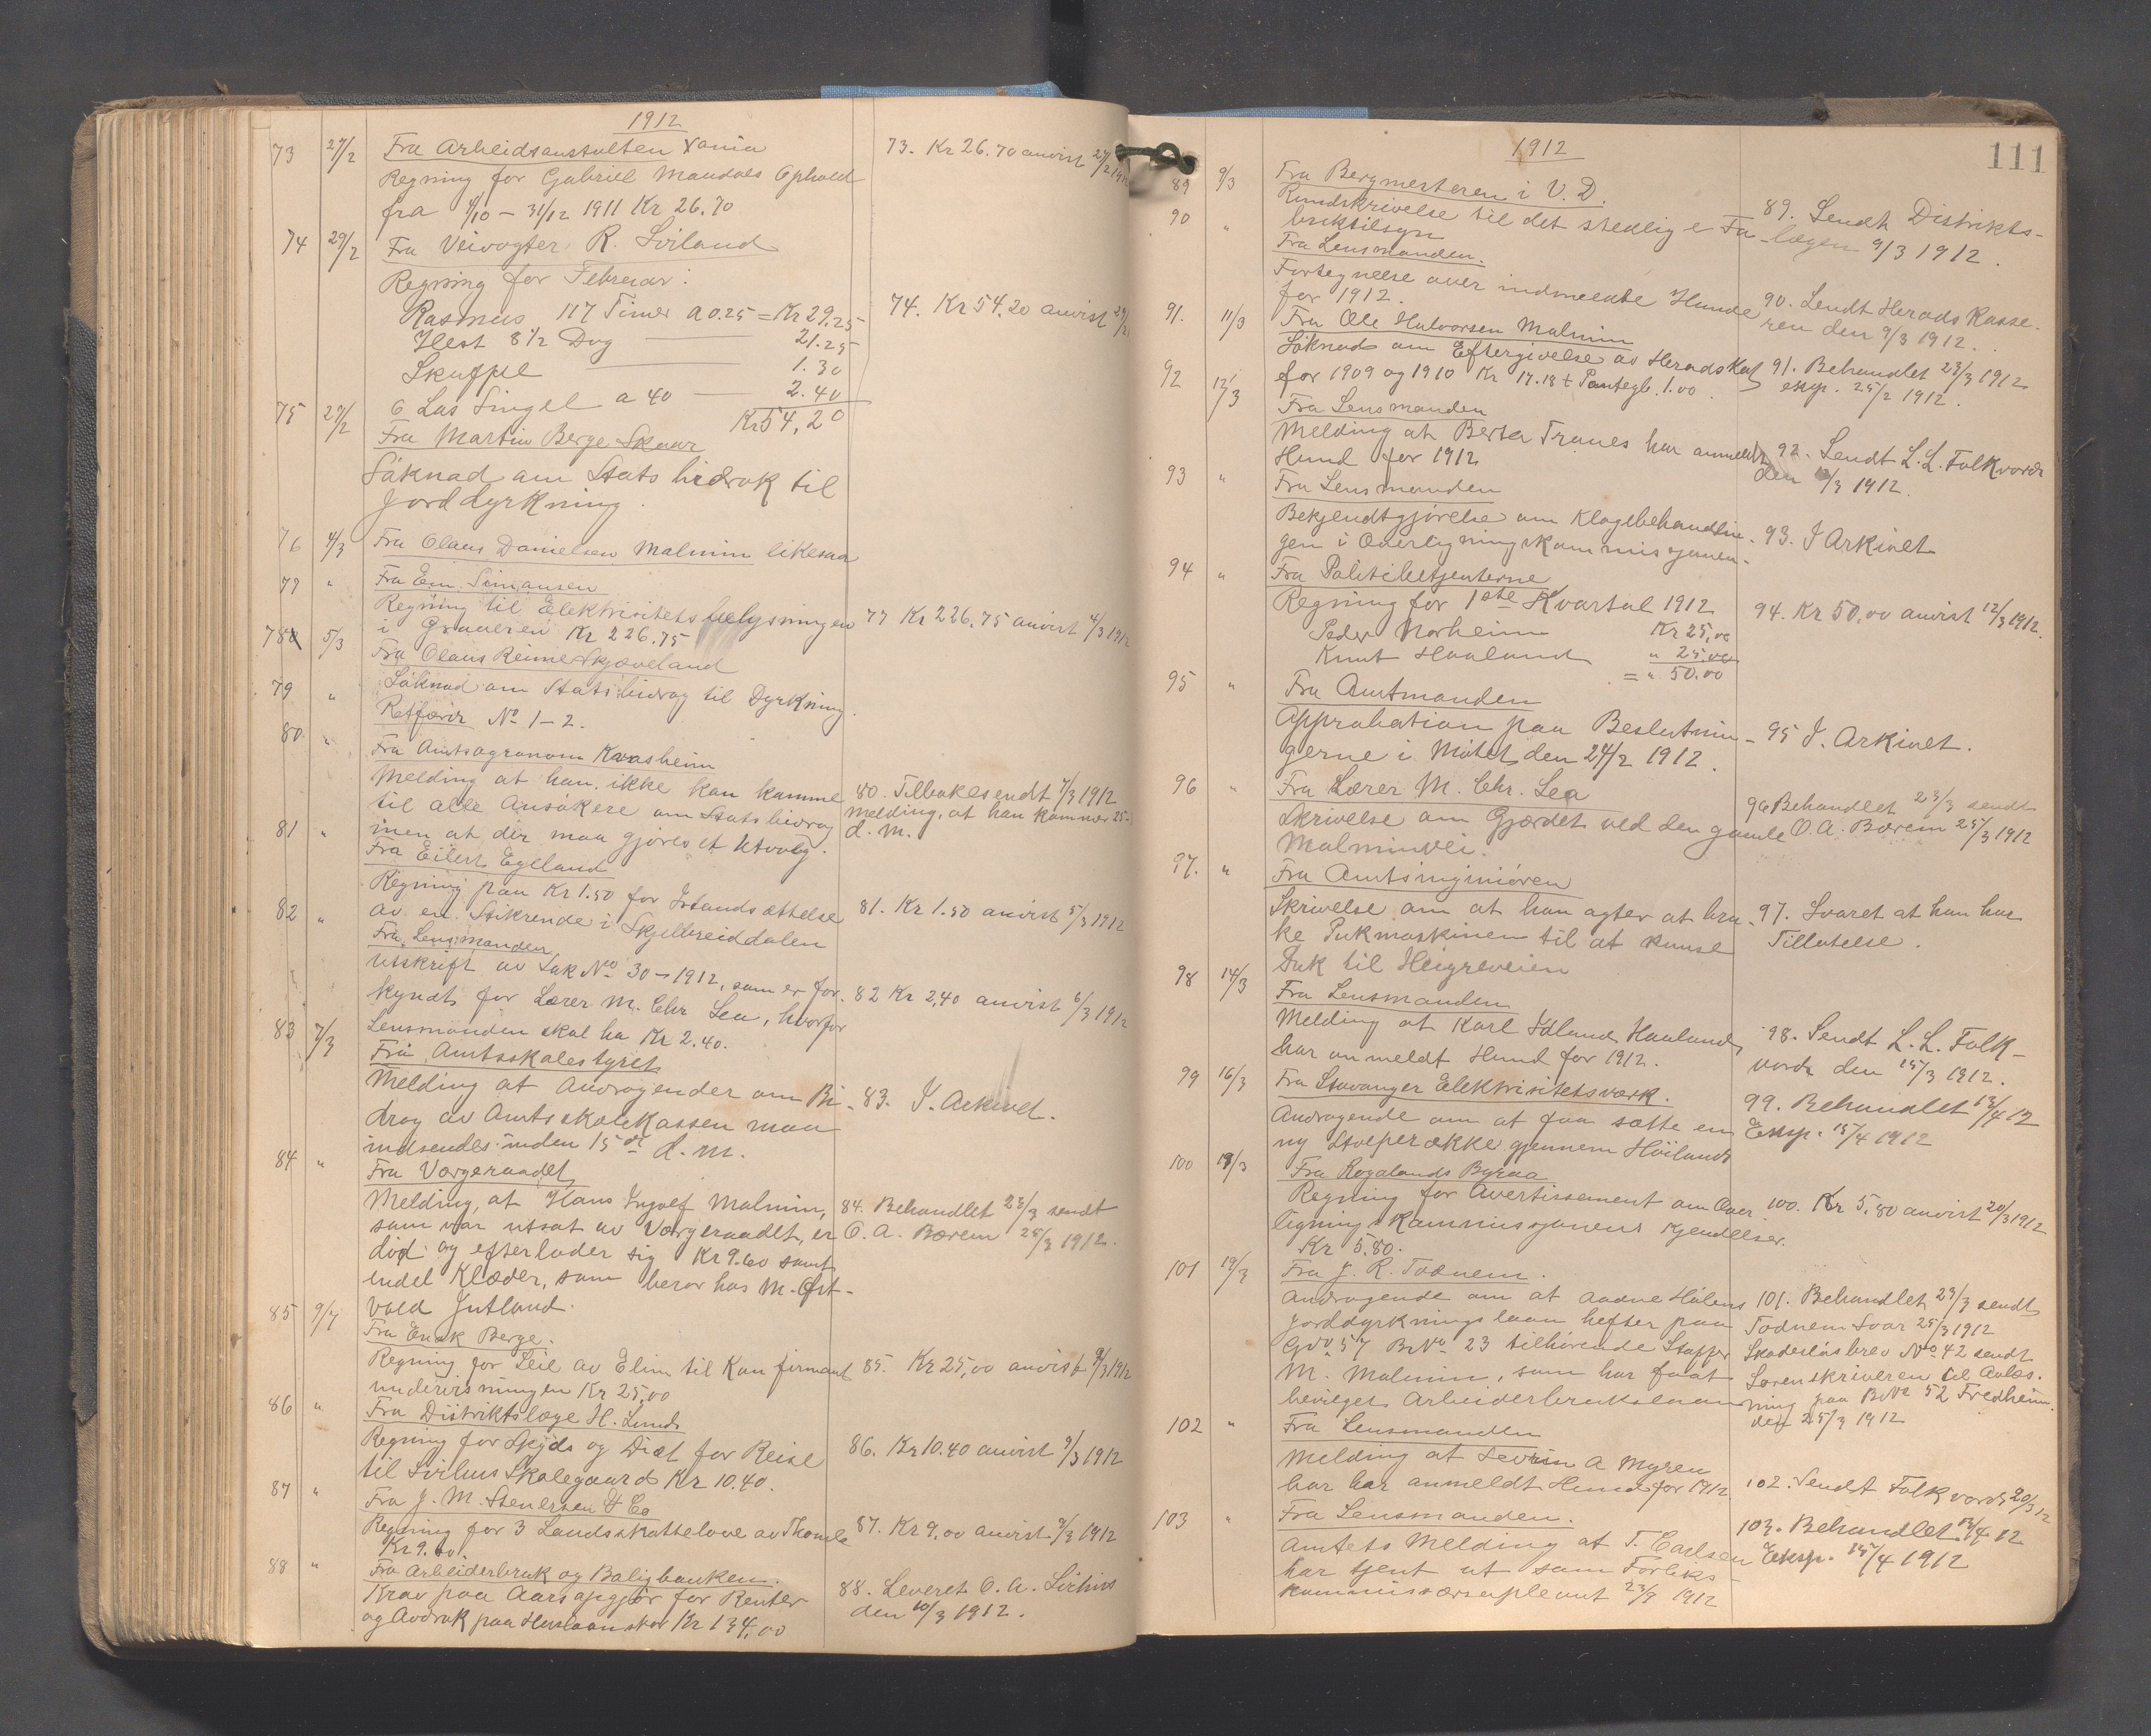 1912
73 27/2 Fra Arbeidsanstalten Xania
Regning for Gabriel Mandals Ophold
fra 4/10 - 31/12 1911 Kr 26.70
73. Kr 26.70 anvist 27/2 1912
74 29/2 Fra Veivogter R. Sviland
Regning for Februar:
Rasmus 117 Timer a 0.25 = Kr 29.25
Hest 8½ Dag 21.25
Skuffel 1.30
6 Las Singel a 40 2.40
Kr 54,20
74. Kr 54.20 anvist 29/2
75 29/2 Fra Martin Berge Skaar
Søknad om Statsbidrak til
Jorddyrkning.
76 4/3 Fra Olaus Danielsen Malmin likesaa
77 " Fra Em. Simonsen
Regning til Elektrisitetsbelysningen
i Graveren Kr 226.75
77 Kr 226.75 anvist 4/3 1912
78 5/3 Fra Olaus Reime Skjæveland
Søknad om Statsbidrag til Dyrkning.
79 " Retfærd No 1-2.
80 " Fra Amtsagronom Kvasheim
Melding at han ikke kan komme
til alle Ansøkere om Statsbidrag
men at der maa gjøres et Utvalg.
80. Tilbakesendt 7/3 1912
Melding, at han kommer 25-
d. M.
81 " Fra Eilert Egeland
Regning paa Kr 1.50 for Istandsættelse
av en Stikrende i Skjelbreiddalen
81. Kr 1.50 anvist 5/3 1912
82 " Fra Lensmanden
Utskrift av Sak No 30 - 1912, som er for-
kyndt for Lærer M. Chr Lea, hvorfor
Lensmanden skal ha Kr 2.40.
82 Kr 2,40 anvist 6/3 1912
83 7/3 Fra Amtsskolestyret
Melding at Andragender om Bi-
drag av Amtsskolekassen maa
indsendes inden 15de d. M.
83. I Arkivet.
84 " Fra Værgeraadet
Melding, at Hans Ingolf Malmin,
som var utsat av Værgeraadet, er
død og efterlader sig Kr 9.60 samt
endel Klæder, som beror hos M. Øst-
vold Jutland.
84. Behandlet 23/3 sendt
O. A. Bærem 25/3 1912.
85 9/3 Fra Enok Berge.
Regning for Leie av Elim til Konfirmant
undervisningen Kr 25,00
85. Kr 25,00 anvist 9/3 1912
86 " Fra Distriktslæge H. Lund
Regning for Skyds og Diæt for Reise
til Sirhus Skolegaard Kr 10.40.
86. Kr 10.40 anvist 9/3 1912
87 " Fra J. M. Stenersen & Co
Regning for 3 Landsskattelove av Thomle
Kr 9.00
87. Kr 9,00 anvist 9/3 1912
88 " Fra Arbeiderbruk og Boligbanken.
Krav paa Aarsopgjør for Renter
og Avdrak paa Huslaan stor Kr 134,00
88. Leveret O. A. Sirhus
den 10/3 1912.
111
1912
89 9/3 Fra Bergmesteren i V. D.
Rundskrivelse til det stedlige Fa-
briktilsyn
89. Sendt Distrikts-
lægen 9/3 1912.
90 " Fra Lensmanden.
Fortegnelse over indmeldte Hunde
for 1912.
90. Sendt Herads Kasse-
ren den 9/3 1912.
91. 11/3 Fra Ole Halvorsen Malmin
Søknad om Eftergivelse av Heradskat
for 1909 og 1910 Kr 17.18 + Pantegb. 1.00.
91. Behandlet 23/3 1912
exp. 25/2 1912.
92 12/3 Fra Lensmanden
Melding at Berta Tranes har anmeldt
Hund for 1912
92. Sendt L. L. Folkvord
den 12/3 1912.
93 " Fra Lensmanden
Bekjendtgjørelse om Klagebehandlin-
gen i Overligningskommissjonen.
93. I Arkivet
94 " Fra Politibetjenterne
Regning for 1ste Kvartal 1912
Peder Norheim Kr 25,00
Knut Haaland " 25,00
= " 50.00
94. Kr 50,00 anvist 12/3 1912.
95 " Fra Amtmanden
Approbation paa Beslutnin-
gerne i Møtet den 24/2 1912.
95 I. Arkivet.
96 " Fra Lærer M. Chr. Lea
Skrivelse om Gjærdet ved den gamle
Malminvei.
96 Behandlet 23/3 sendt
O. A. Bærem 25/3 1912
97. " Fra Amtsingniøren
Skrivelse om at han agter at bru-
ke Pukmaskinen til at knuse
Puk til Heigreveien
97. Svaret at han har
Tillatelse.
98 14/3 Fra Lensmanden
Melding at Karl Ydland Haaland,
har anmeldt Hund for 1912.
98. Sendt L. L. Folk-
vord den 15/3 1912.
99 16/3 Fra Stavanger Elektrisitetsværk.
Andragende om at faa sætte en
ny Stolperække gjennem Høiland
99. Behandlet 13/4 12
Exsp. 15/4 1912
100 18/3 Fra Rogalands Byraa
Regning for Avertissement om Over
ligningskommissjonens Kjendelser.
Kr 5.80.
100. Kr 5,80 anvist 20/3 1912
101 19/3 Fra J. R. Todnem.
Andragende om at Aadne Hølens
Jorddyrkningslaan hefter paa
Gno 57 BrNo 23 tilhørende Staffer
M. Malmin, som har faat
bevilget Arbeiderbrukslaan
101. Behandlet 23/3 sendt
Todnem Svar 25/3 1912
Skadesløsbrev No 42 sendt
Sorenskriveren til Avlæs-
ning paa BNo 52 Fredheim.
den 25/3 1912
102 " Fra Lensmanden
Melding at Sevrin A Myren
har har anmeldt Hund for 1912.
102. Sendt Folkvord 20/3 12
103 " Fra Lensmanden.
Amtets Melding at T. Carlsen
har tjent ut som Forliks-
kommissærsupleant 23/9 1912
103. Behandlet 13/4 12
Exsp. 15/4 1912